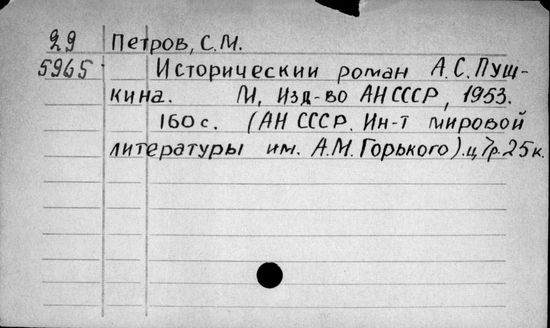 29 Петров, С.М.
5965 Исторический роман А.С.Пуш-
кина. М, Изд-во АН СССР, 1953.
160 с. (АН СССР. Ин-т мировой
литературы им. А.М. Горького). ц 7р. 25 к.